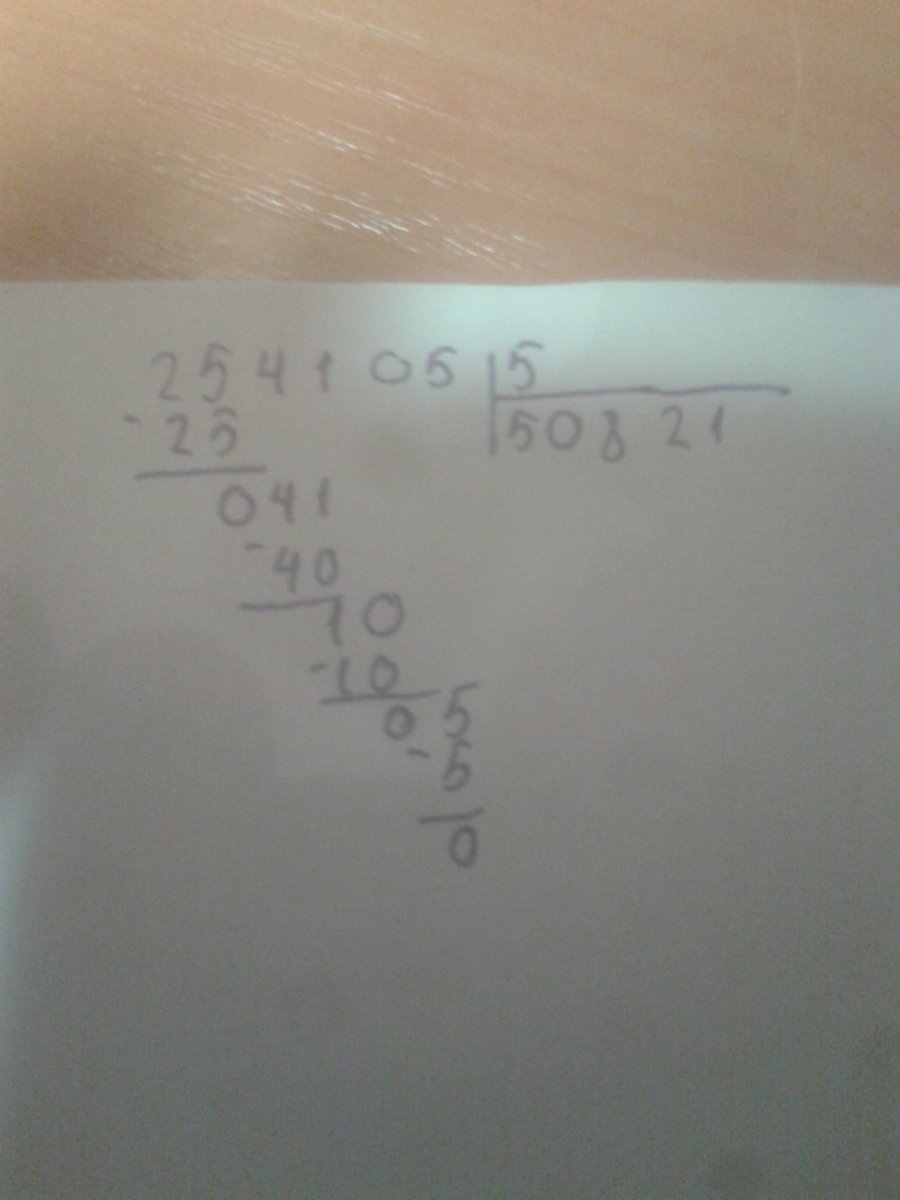 254105 5
- 25 50821
041
- 40
10
- 10
05
- 5
0